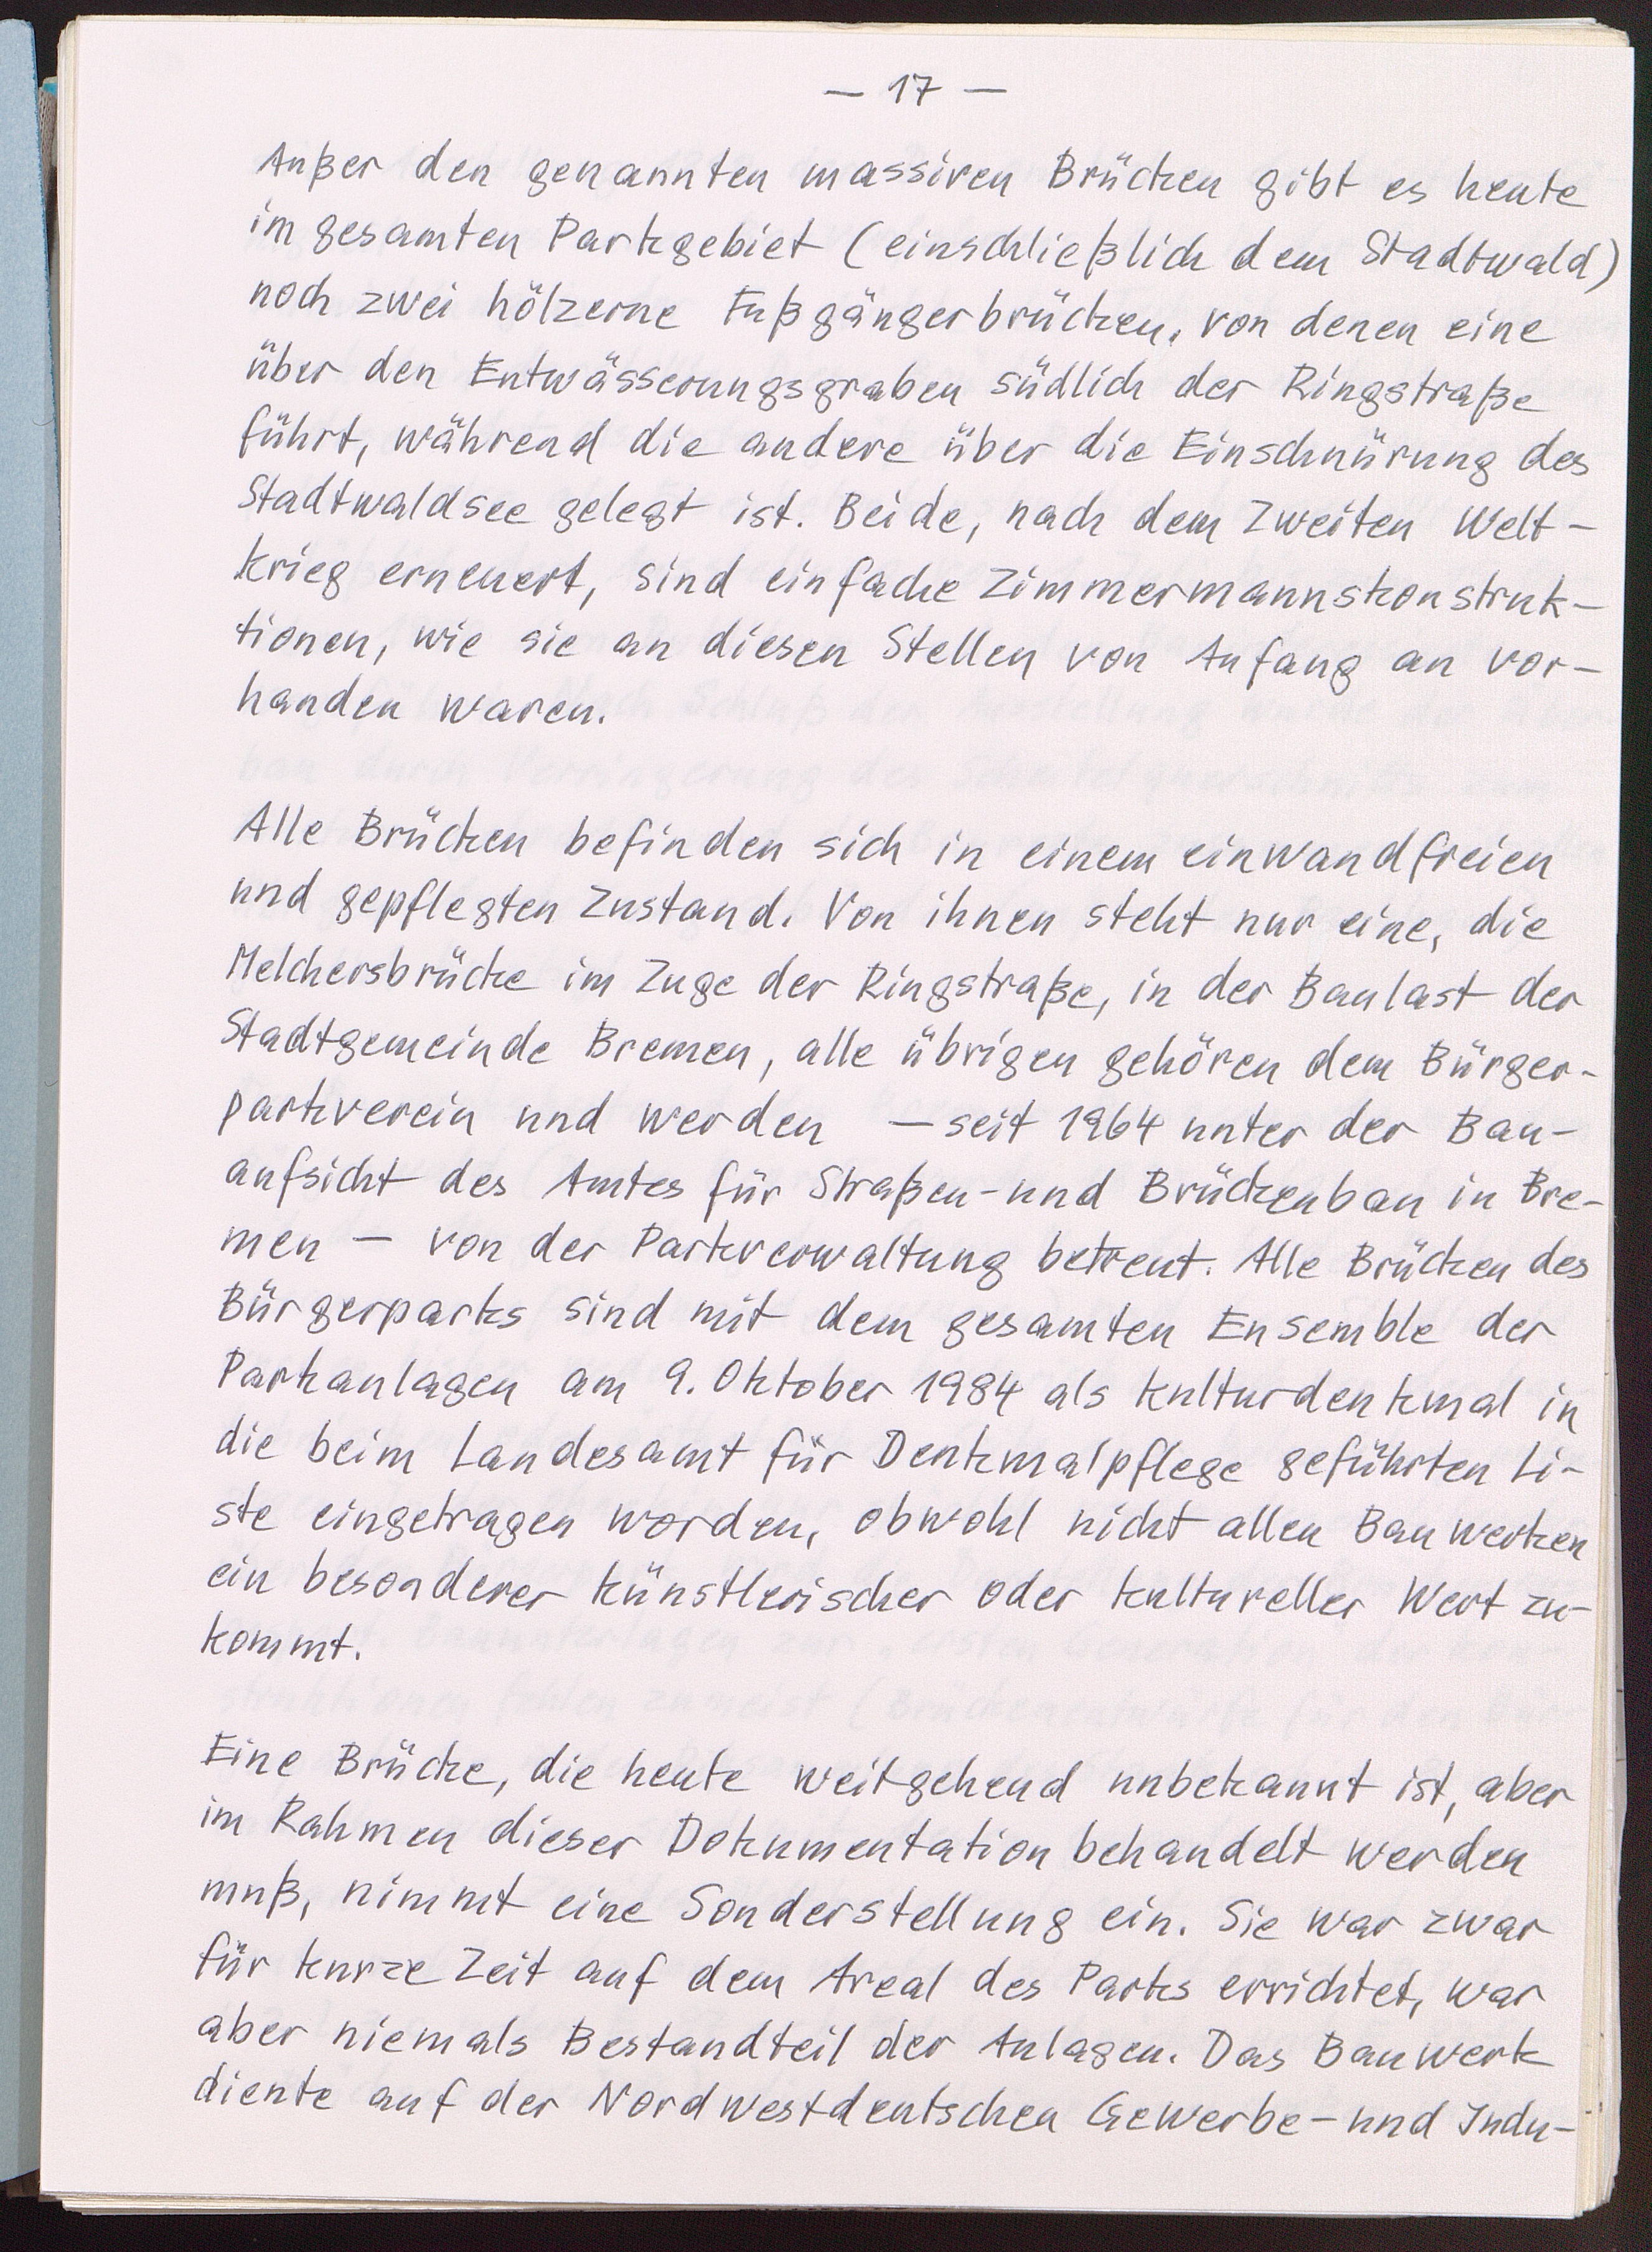 — 17 —
Außer den genannten massiven Brücken gibt es heute
im gesamten Parkgebiet (einschließlich dem Stadtwald)
noch zwei hölzerne Fußgängerbrücken, von denen eine
über den Entwässerungsgraben südlich der Ringstraße
führt, während die andere über die Einschnürung des
Stadtwaldsee gelegt ist. Beide, nach dem Zweiten Welt-
krieg erneuert, sind einfache Zimmermannskonstruk-
tionen, wie sie an diesen Stellen von Anfang an vor-
handen waren.
Alle Brücken befinden sich in einem einwandfreien
und gepflegten Zustand. Von ihnen steht nur eine, die
Melchersbrücke im Zuge der Ringstraße, in der Baulast der
Stadtgemeinde Bremen, alle übrigen gehören dem Bürger-
parkverein und werden — seit 1964 unter der Bau-
aufsicht des Amtes für Straßen- und Brückenbau in Bre-
men — von der Parkverwaltung betreut. Alle Brücken des
Bürgerparks sind mit dem gesamten Ensemble der
Parkanlagen am 9. Oktober 1984 als Kulturdenkmal in
die beim Landesamt für Denkmalpflege geführten Li-
ste eingetragen worden, obwohl nicht allen Bauwerken
ein besonderer künstlerischer oder kultureller Wert zu-
kommt.
Eine Brücke, die heute weitgehend unbekannt ist, aber
im Rahmen dieser Dokumentation behandelt werden
muß, nimmt eine Sonderstellung ein. Sie war zwar
für kurze Zeit auf dem Areal des Parks errichtet, war
aber niemals Bestandteil der Anlagen. Das Bauwerk
diente auf der Nordwestdeutschen Gewerbe- und Indu-